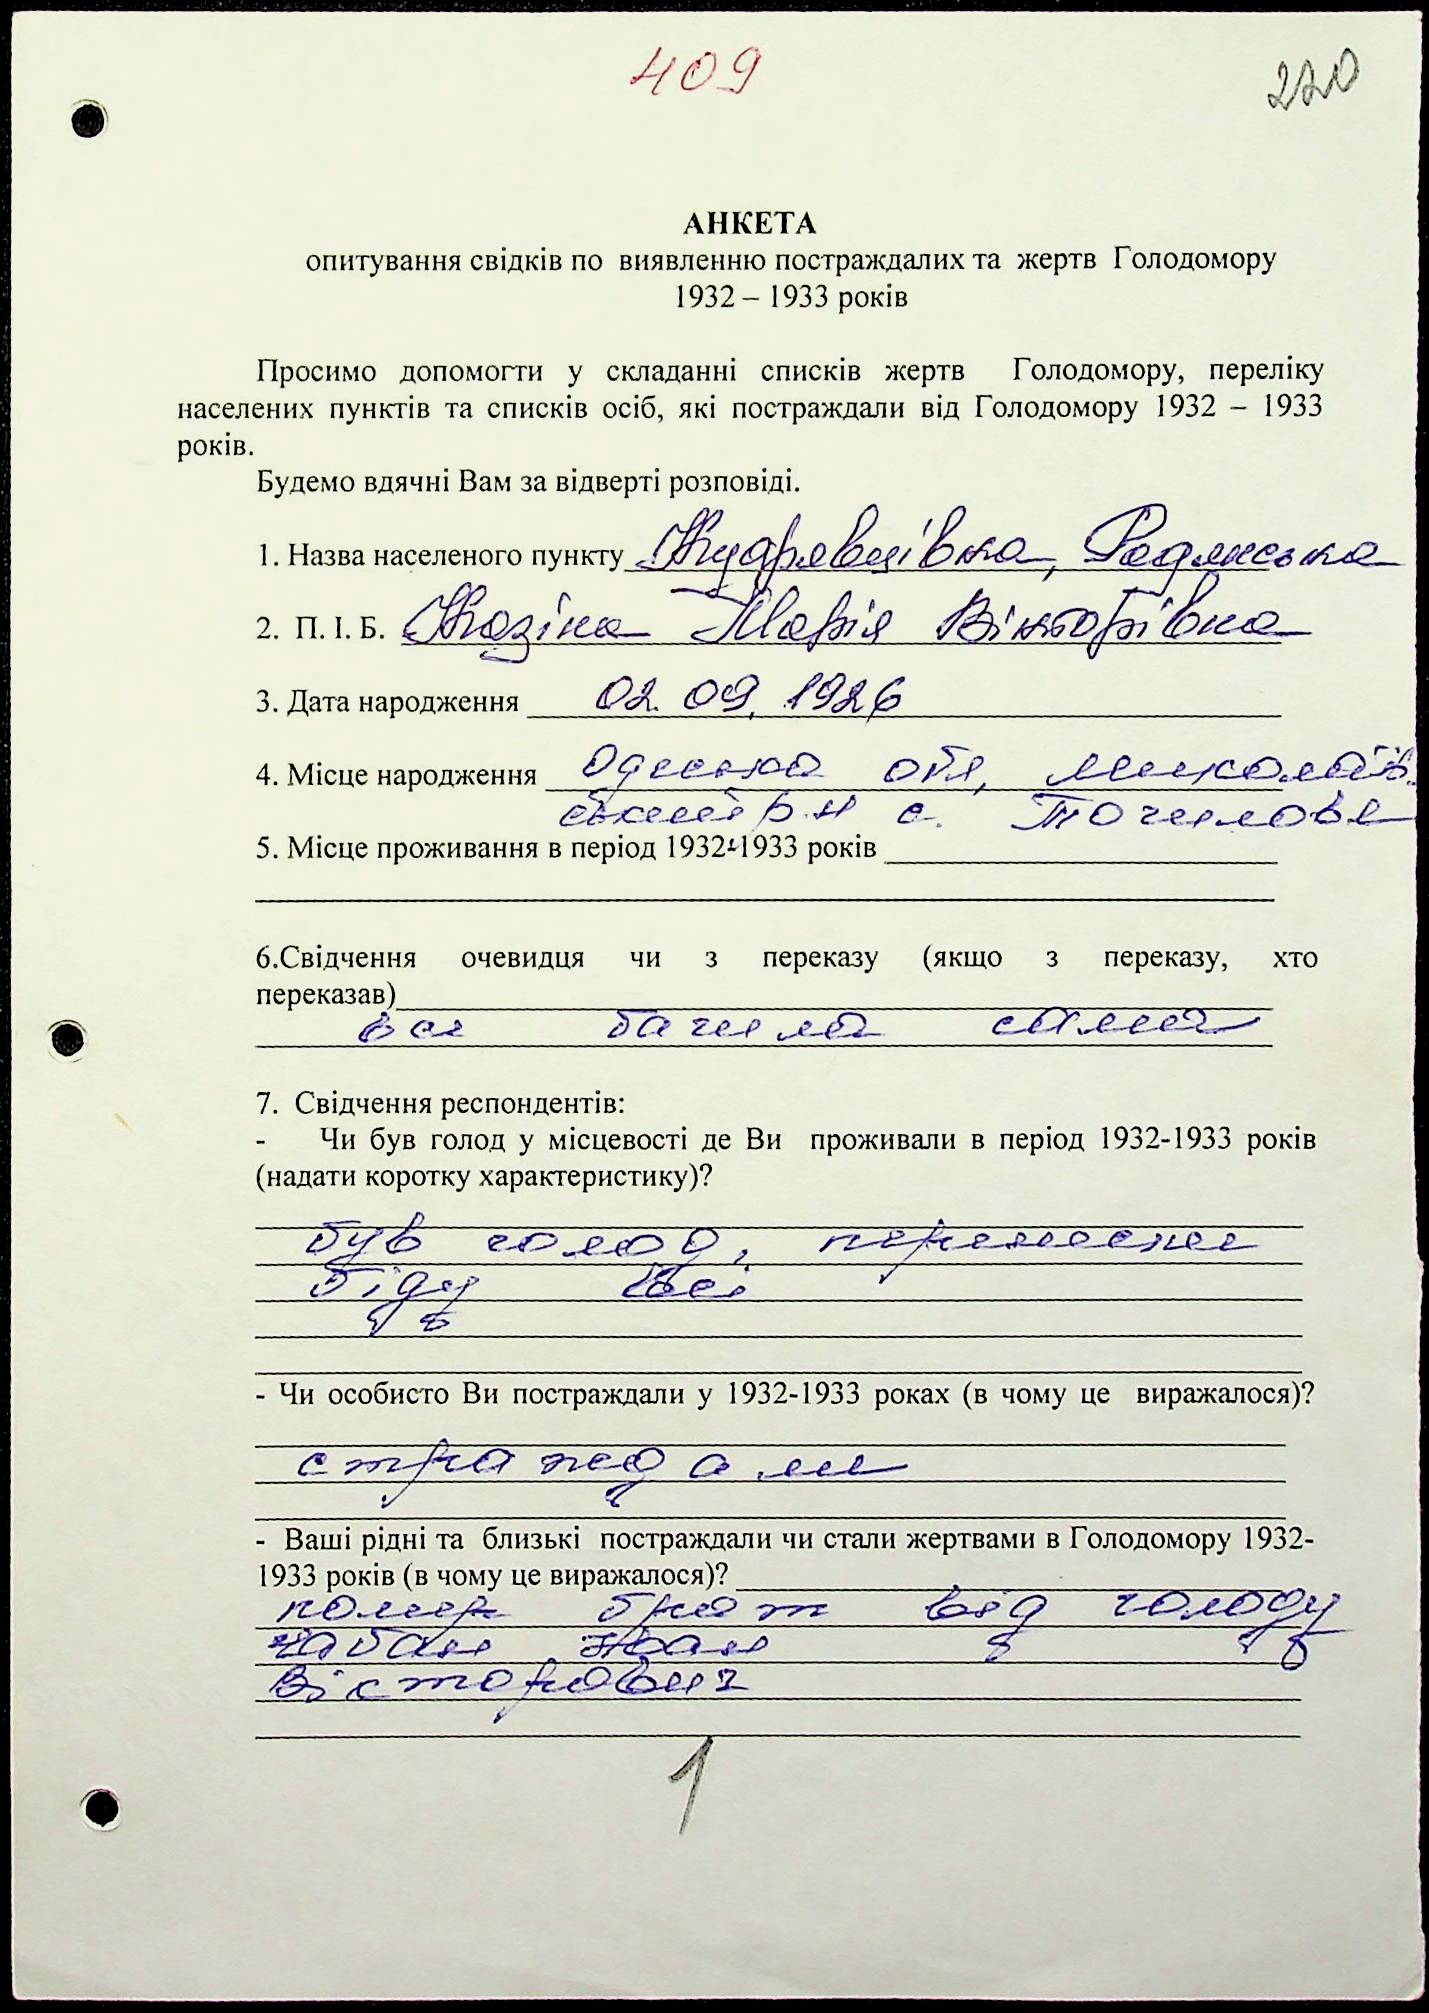 409
220
АНКЕТА
опитування свідків по виявленню постраждалих та жертв Голодомору
1932 – 1933 років
Просимо допомогти у складанні списків жертв Голодомору, переліку
населених пунктів та списків осіб, які постраждали від Голодомору 1932 – 1933
років.
Будемо вдячні Вам за відверті розповіді.
1. Назва населеного пункту Кудрявцівка, Радянська
2. П. І. Б. Козіна Марія Вікторівна
3. Дата народження 02. 09. 1926
4. Місце народження Одеська обл,
р.н с. Точилове
5. Місце проживання в період 1932-1933 років
6.Свідчення очевидця чи з переказу (якщо з переказу, хто
переказав)
все бачила сама
7. Свідчення респондентів:
- Чи був голод у місцевості де Ви проживали в період 1932-1933 років
(надати коротку характеристику)?
був голод, перенесли
біду всі
- Чи особисто Ви постраждали у 1932-1933 роках (в чому це виражалося)?
страждали
- Ваші рідні та близькі постраждали чи стали жертвами в Голодомору 1932-
1933 років (в чому це виражалося)?
помер брат від голоду
Чабан Іван
Вікторович
1